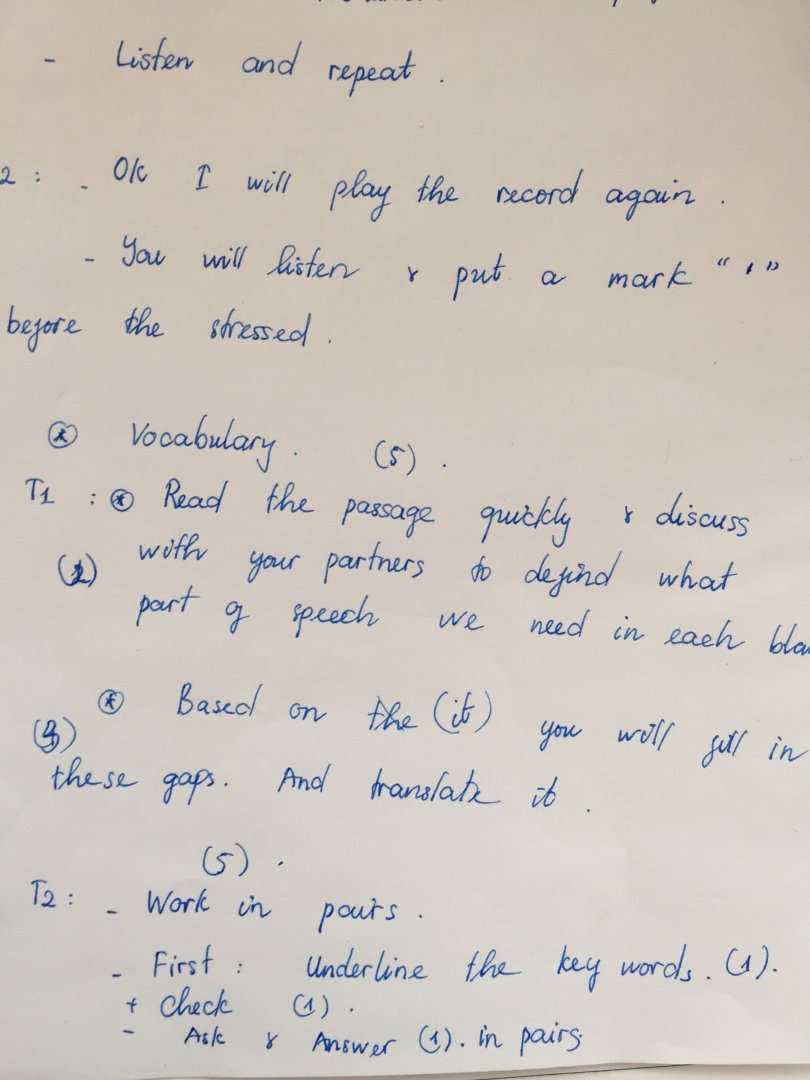 - Listen and repeat.
2 : - Ok I will play the record again.
- You will listen & put a mark "'"
before the stressed.
⊛ Vocabulary. (5).
T1 : ⊛ Read the passage quickly & discuss
(2) with your partners to defind what
part of speech we need in each bla
⊛ Based on the (it) you will fill in
(3)
these gaps. And translate it.
(5).
T2 : - Work in pairs.
- First : Underline the key words. (1).
+ Check (1).
- Ask & Answer (1). in pairs.